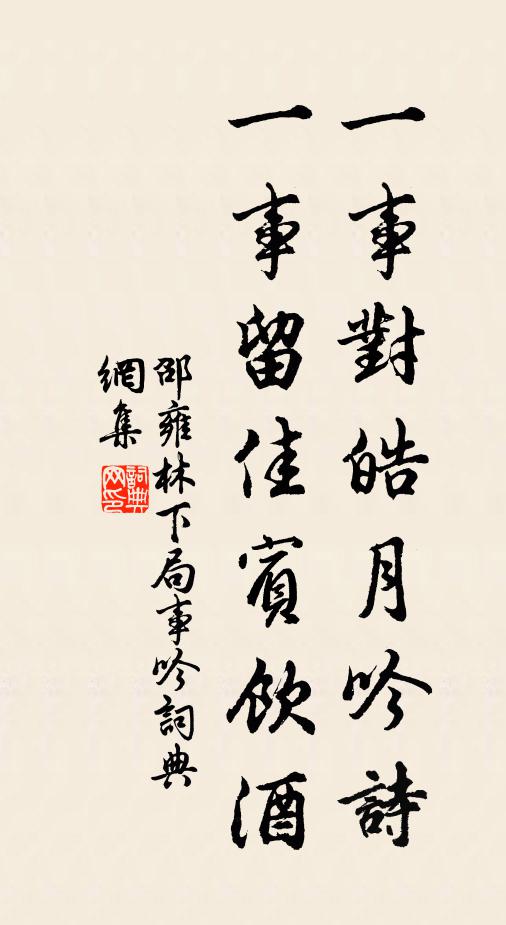 一事對皓月吟詩
一事留佳賓飲酒
邵雍林下局事吟詞典
網集
詞典
网印